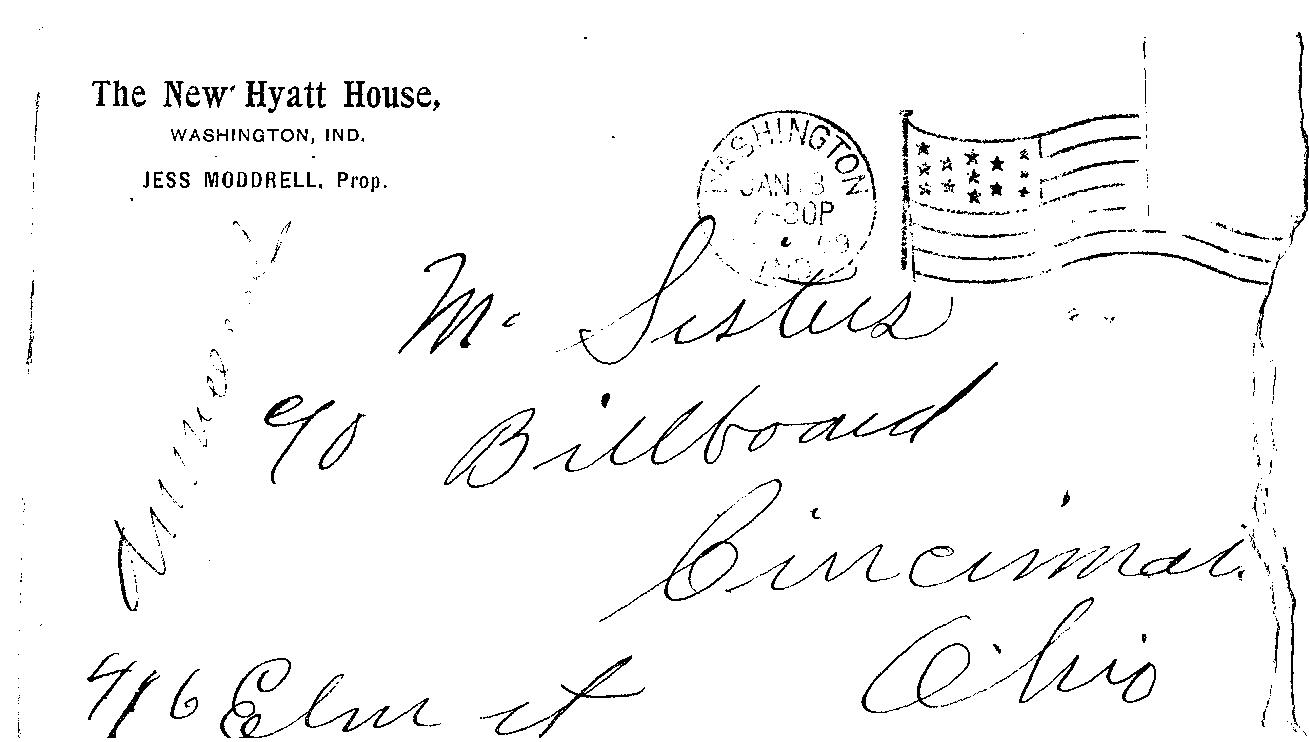 The New Hyatt House,
WASHINGTON, IND.
JESS MODDRELL, Prop.
WASHINGTON
JAN 3
30P
IND
M. Sisters
c/o Billboard
Cincinnati.
Ohio
416 Elm st